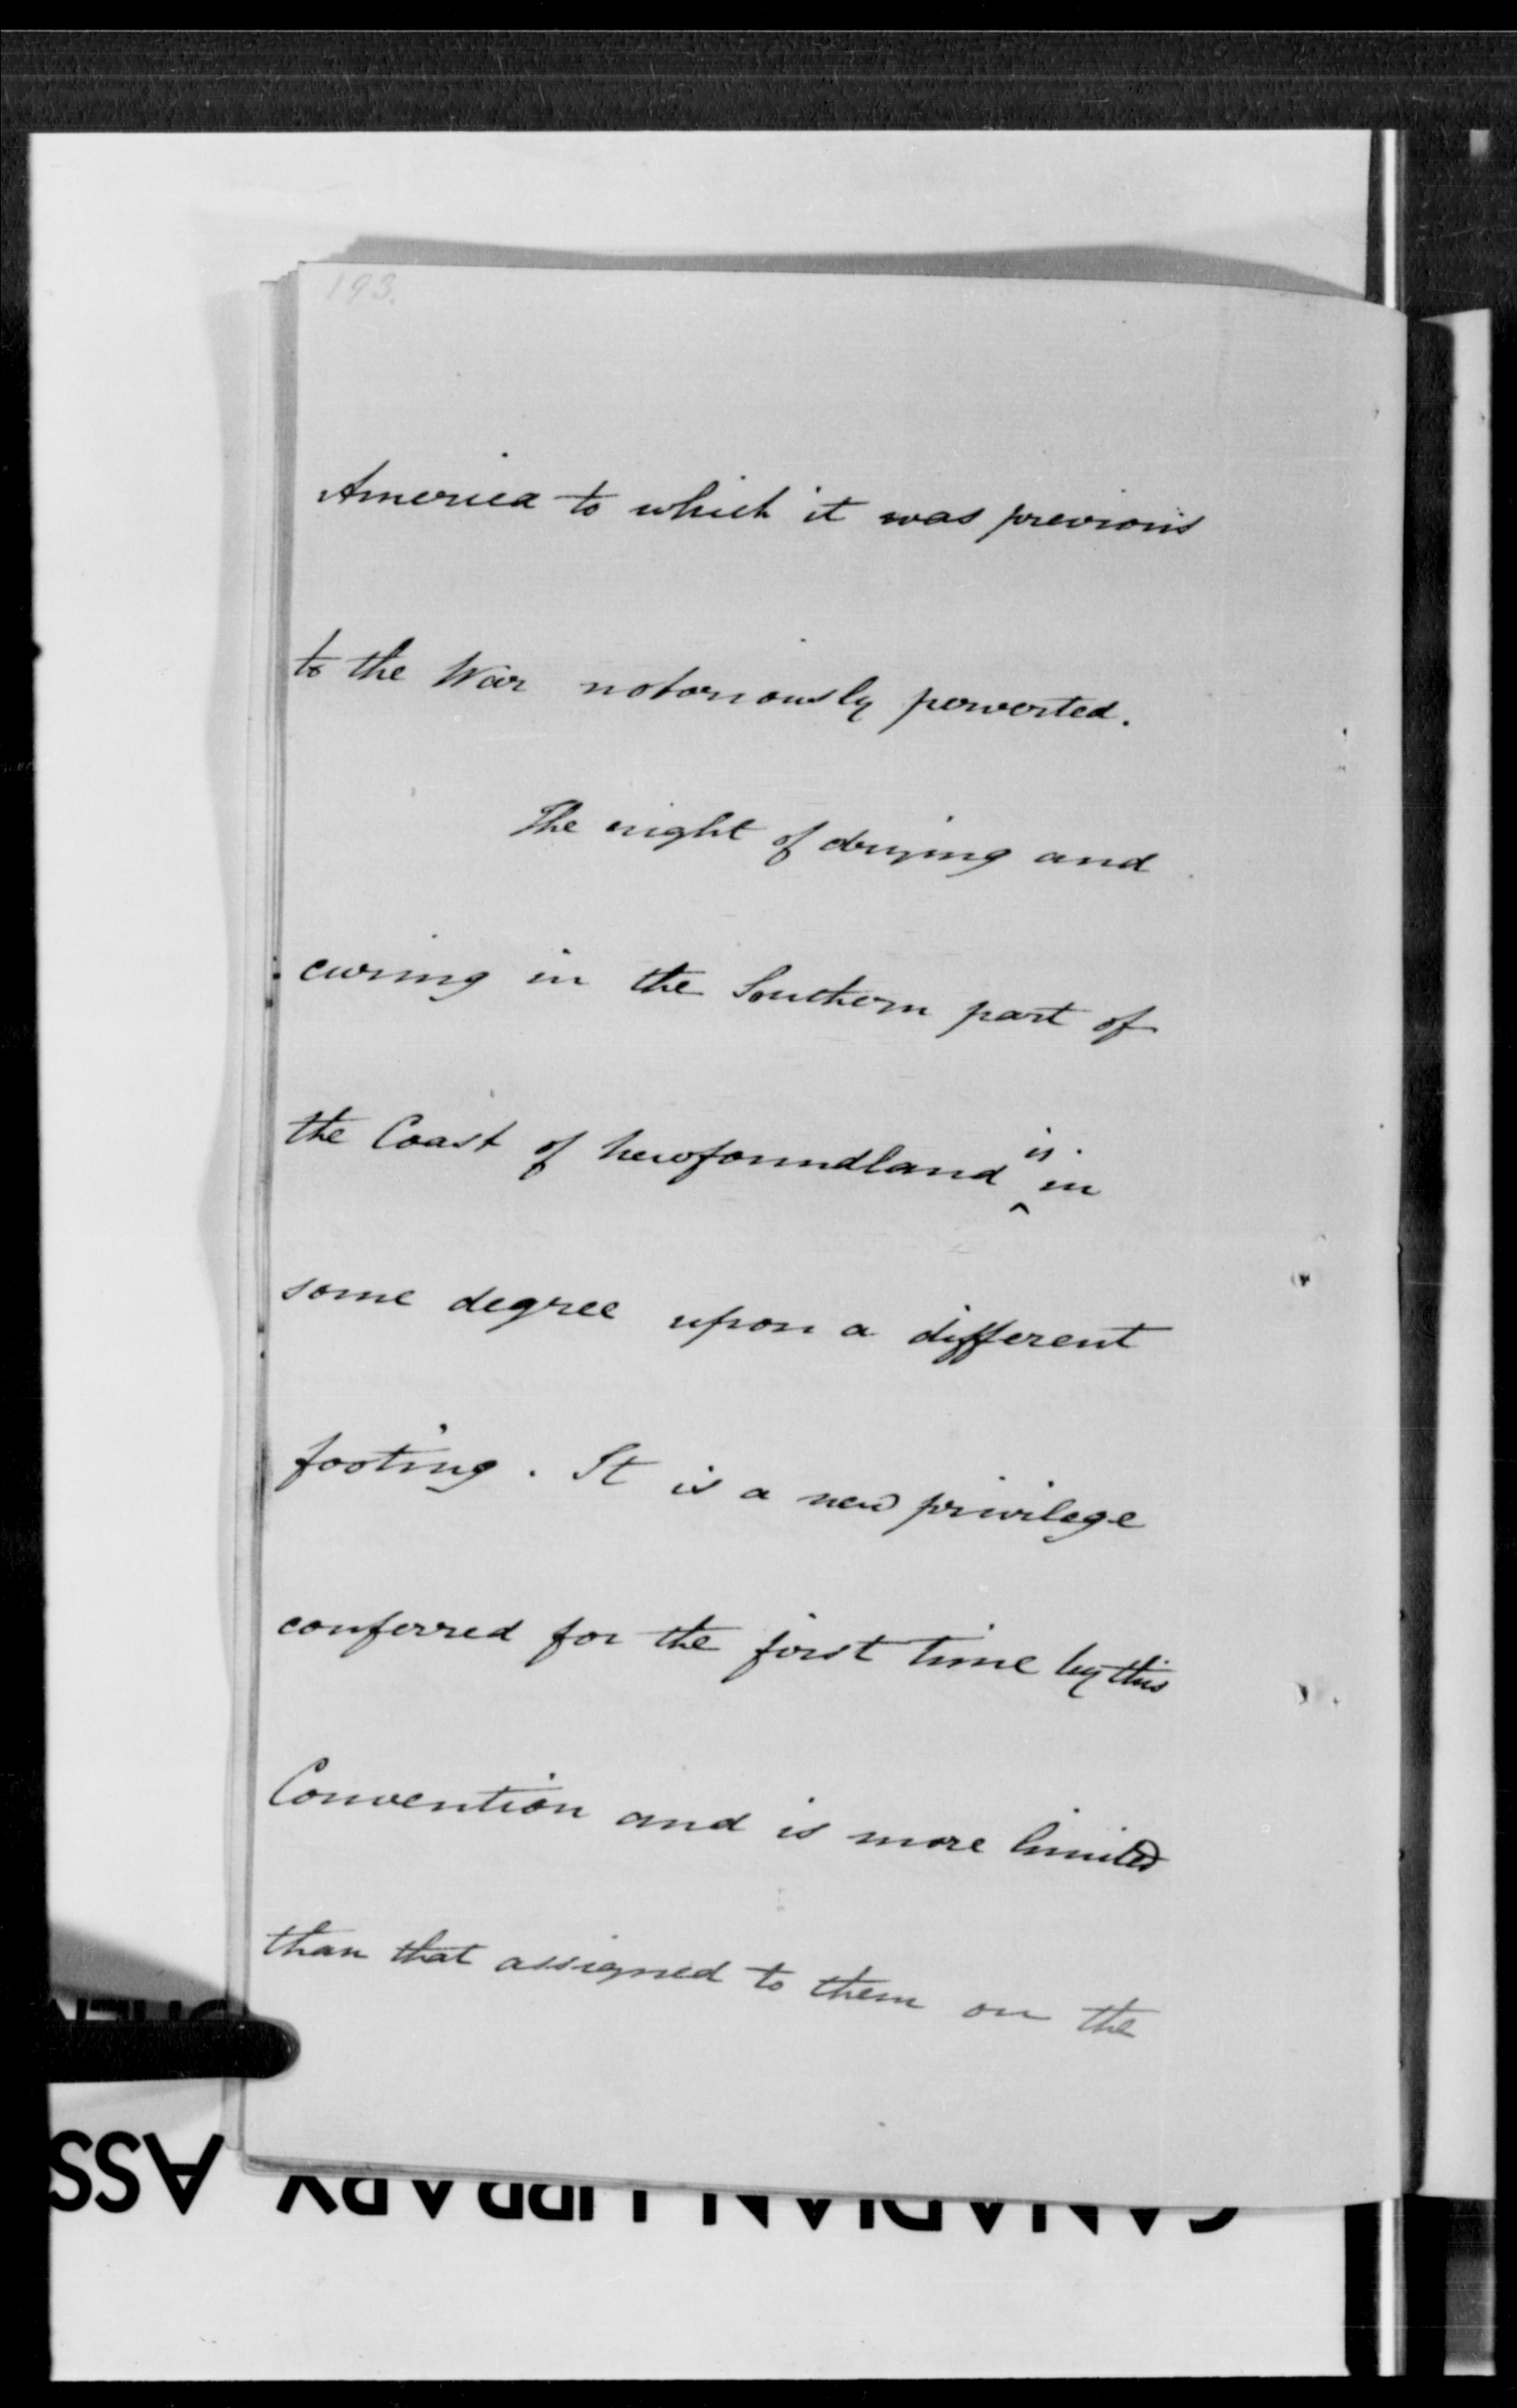 193.
America to which it was previous
to the War notoriously perverted.
The right of drying and
curing in the Southern part of
the Coast of Newfoundland is in
some degree upon a different
footing. It is a new privilege
conferred for the first time by this
Convention and is more limited
than that assigned to them on the
CANADIAN LIBRARY ASS